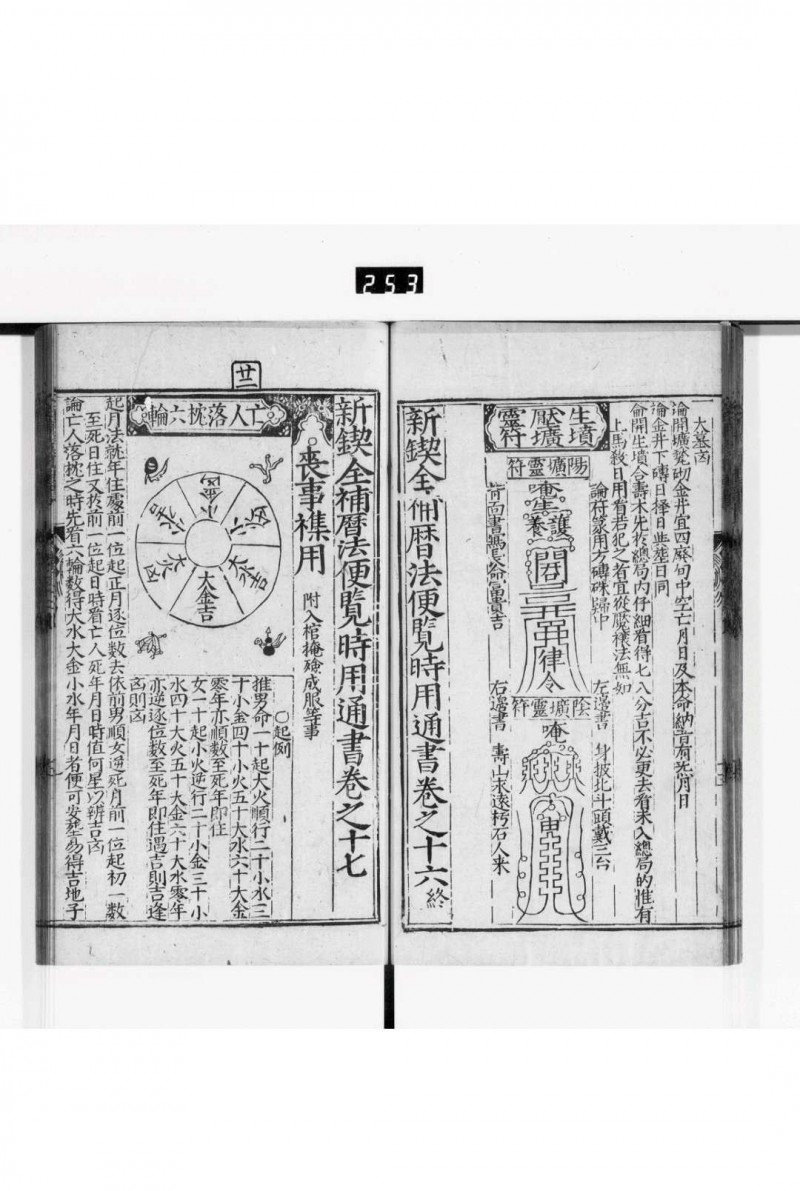 253
大墓凶
論開壙甃砌金井宜四廢旬中空亡月日及本命納音有死月日
論金井下磚日擇日與塟日同
論開生墳合壽木先於總局內仔細看得七八分吉不必更去看未入總局的惟有
上馬殺日用看若犯之者宜從厭禳法無如
生墳
厭壙
靈符
論符篆用方磚硃歸中
陽壙靈符
唵
生養
護
律令
背面書
左邊書 身披北斗頭戴三台
陰壙靈符
唵
右邊書 壽山永遠朽石人来
新鍥全補曆法便覽時用通書卷之十六終
廿二
新鍥全補曆法便覽時用通書卷之十七
喪事襍用 附入棺掩殮成服等事
亡人落枕六輪
大金吉
大水吉
大火凶
小水吉
小金吉
小火凶
○起例
推男命一十起大火順行二十小水三
十小金四十小火五十大水六十大金
零年亦順數至死年即住
女一十起小火逆行二十小金三十小
水四十大火五十大金六十大水零年
亦逆逐位數至死年即住遇吉則吉逢
凶則凶
起月法就年住處前一位起正月逐位數去依前男順女逆死月前一位起初一數
至死日住又於前一位起日時看亡人死年月日時值何星以辨吉凶
論亡人落枕之時先看六輪數得大水大金小水年月日者便可安塟易得吉地子